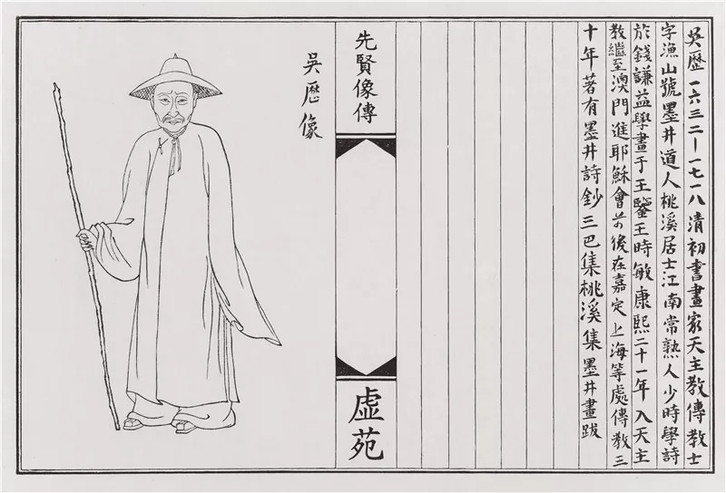 吳歷 一六三二—一七一八 清初書畫家天主教傳教士
字漁山號墨井道人桃溪居士江南常熟人少時學詩
於錢謙益學畫于王鑒王時敏康熙二十一年入天主
教繼至澳門進耶穌會前後在嘉定上海等處傳教三
十年著有墨井詩鈔三巴集桃溪集墨井畫跋
先賢像傳
虛苑
吳歷像